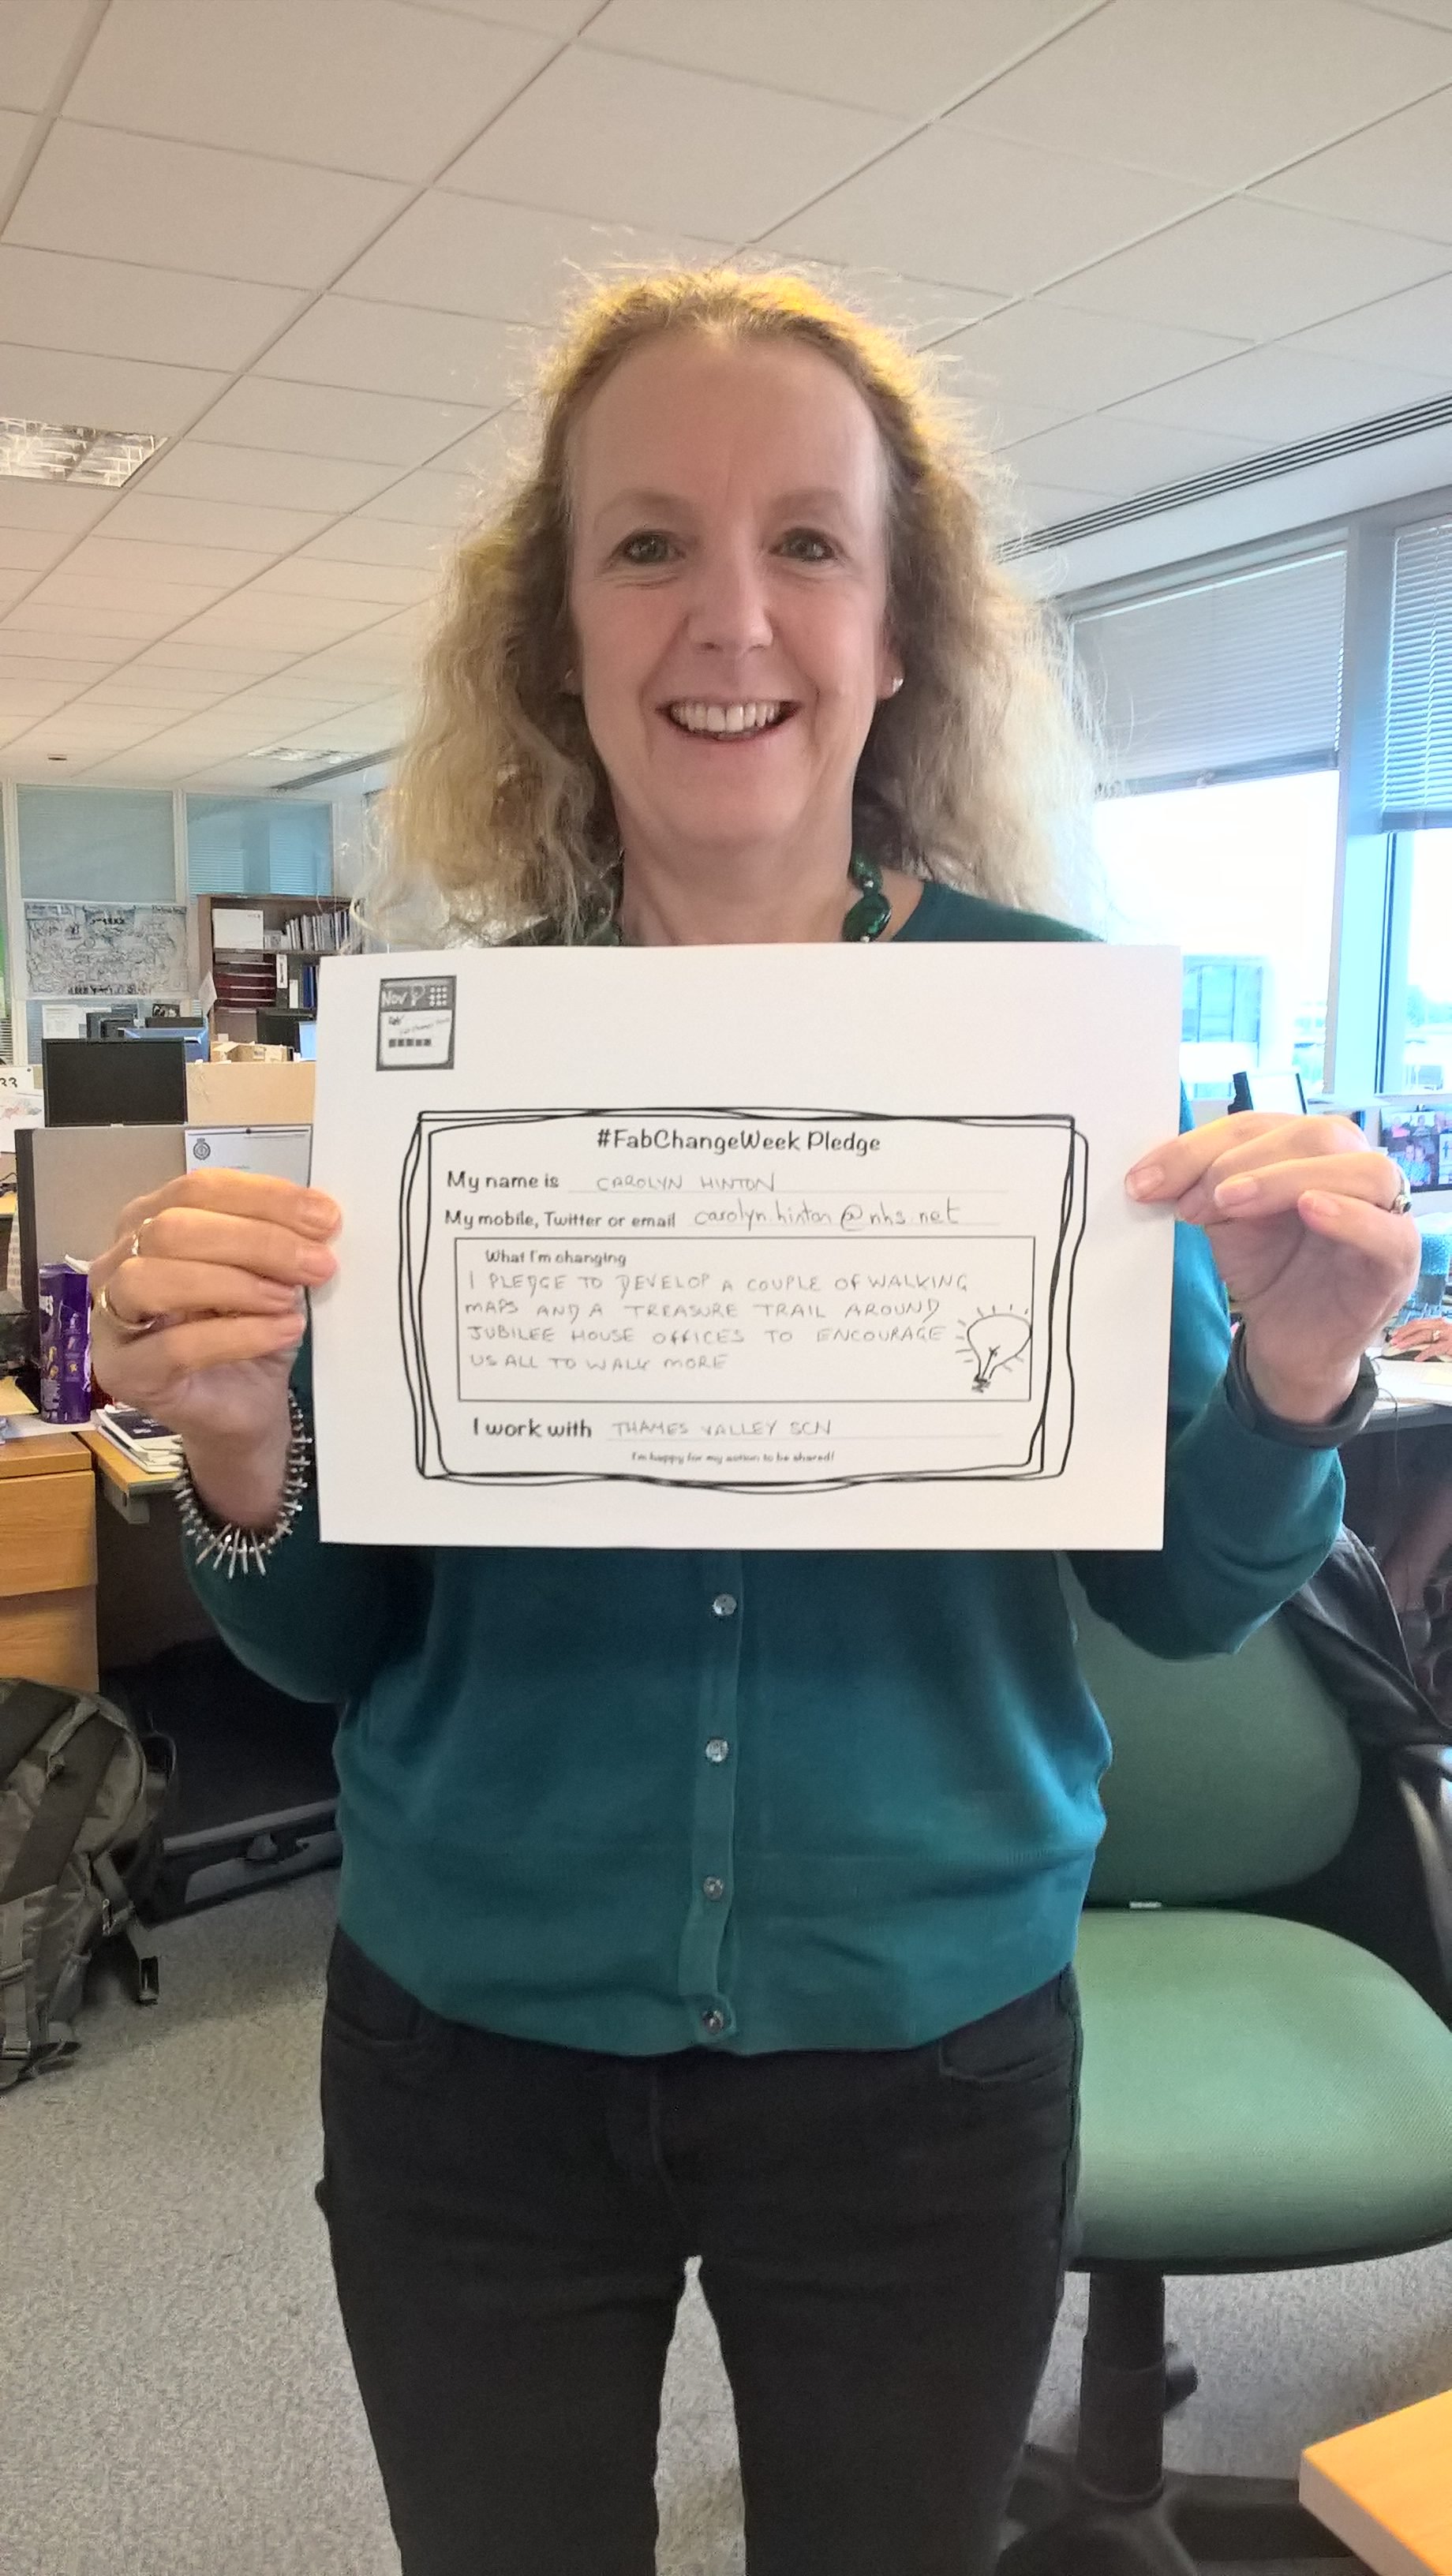 Nov
#FabChangeWeek Pledge
My name is CAROLYN HINTON
My mobile, Twitter or email carolyn.hinton@nhs.net
What I'm changing
I PLEDGE TO DEVELOP A COUPLE OF WALKING
MAPS AND A TREASURE TRAIL AROUND
JUBILEE HOUSE OFFICES TO ENCOURAGE
US ALL TO WALK MORE
I work with THAMES VALLEY SCN
I'm happy for my action to be shared!
33